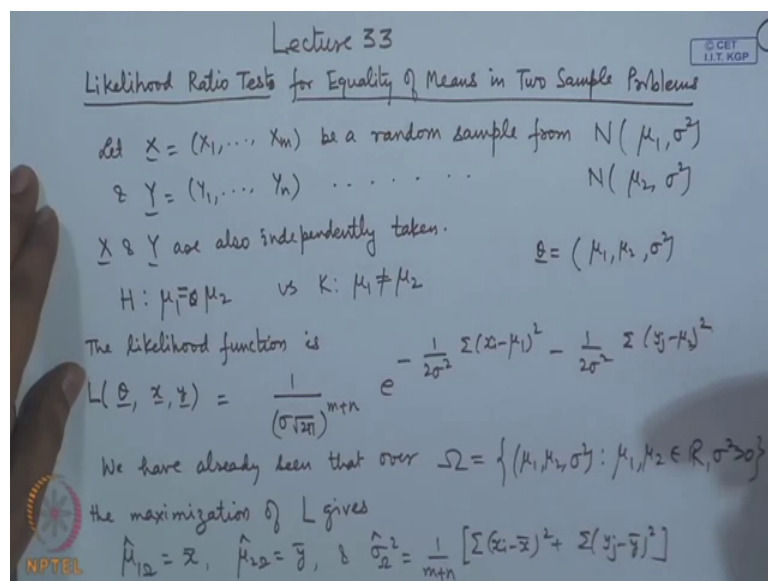 Lecture 33
© CET
I.I.T. KGP
Likelihood Ratio Tests for Equality of Means in Two Sample Problems
Let X = (X₁, ..., Xm) be a random sample from N(μ₁, σ²)
& Y = (Y₁, ..., Yn) . . . . . . . . N(μ₂, σ²)
X & Y are also independently taken.
θ = (μ₁, μ₂, σ²)
H : μ₁ = μ₂ vs K: μ₁ ≠ μ₂
The likelihood function is
L(θ, x, y) = 1/(σ√2π)^(m+n) e^(- 1/2σ² Σ(xi-μ₁)² - 1/2σ² Σ(yj-μ₂)²)
We have already seen that over Ω = {(μ₁, μ₂, σ²) : μ₁, μ₂ ∈ R, σ²>0}
the maximization of L gives
μ̂₁Ω = x̄, μ̂₂Ω = ȳ, & σ̂²Ω = 1/(m+n) [Σ(xi-x̄)² + Σ(yj-ȳ)²]
NPTEL